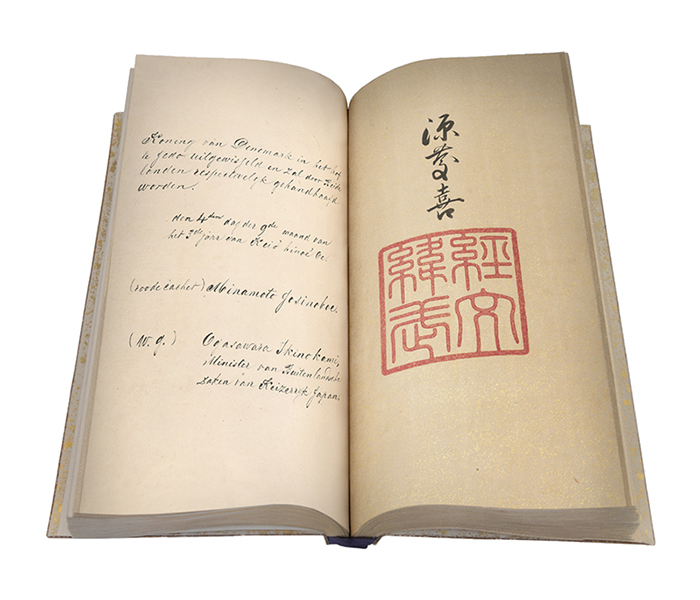 Koning van Denemark in het hof
te Jedo uitgewisseld en zal door beide
landen respectvelijk gehandhaafd
worden.
den 4den dag der 9de maand van
het 3de jaar van Keiô hinoe
(roode cachet) Minamoto Josinoboe.
(w. g.) Ogasawara Ikinokami,
Minister van Buitenlandsche
zaken van Keizerryk Japan.
源慶喜
經文
緯武